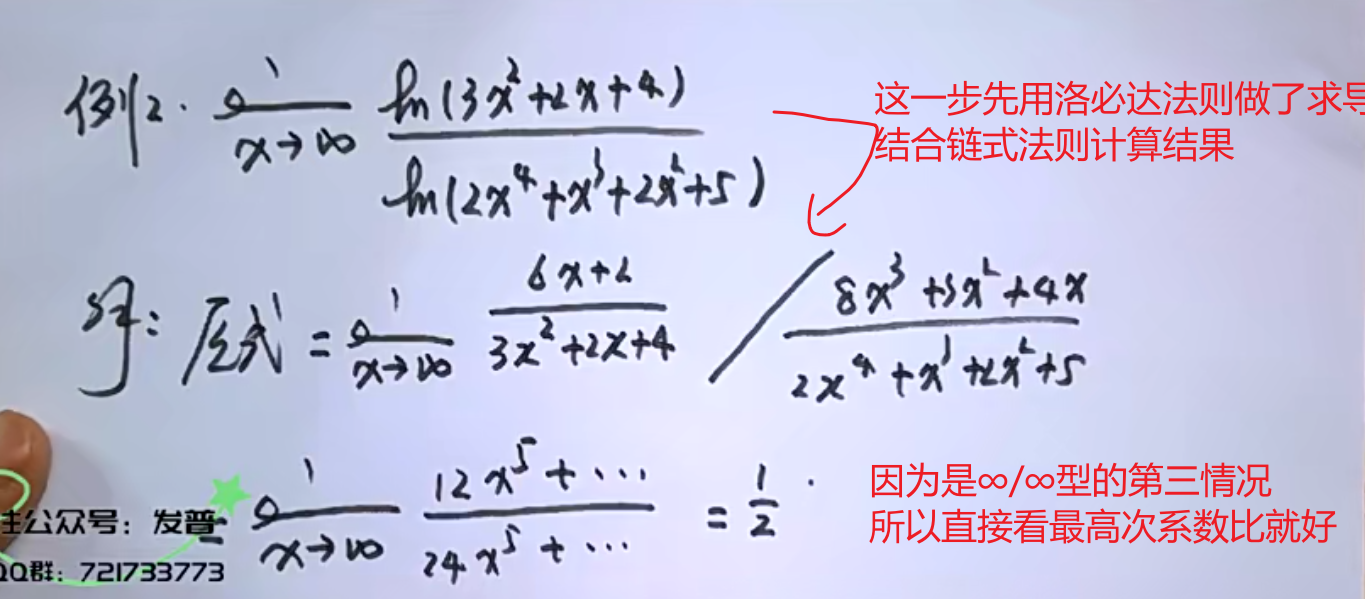 例2. lim x→∞ ln(3x²+2x+4) / ln(2x⁴+x³+2x²+5)
这一步先用洛必达法则做了求导
结合链式法则计算结果
解: 原式 = lim x→∞ (6x+2)/(3x²+2x+4) / (8x³+3x²+4x)/(2x⁴+x³+2x²+5)
= lim x→∞ (12x⁵+…)/(24x⁵+…) = 1/2.
因为是∞/∞型的第三情况
所以直接看最高次系数比就好
注公众号：发普
QQ群：721733773